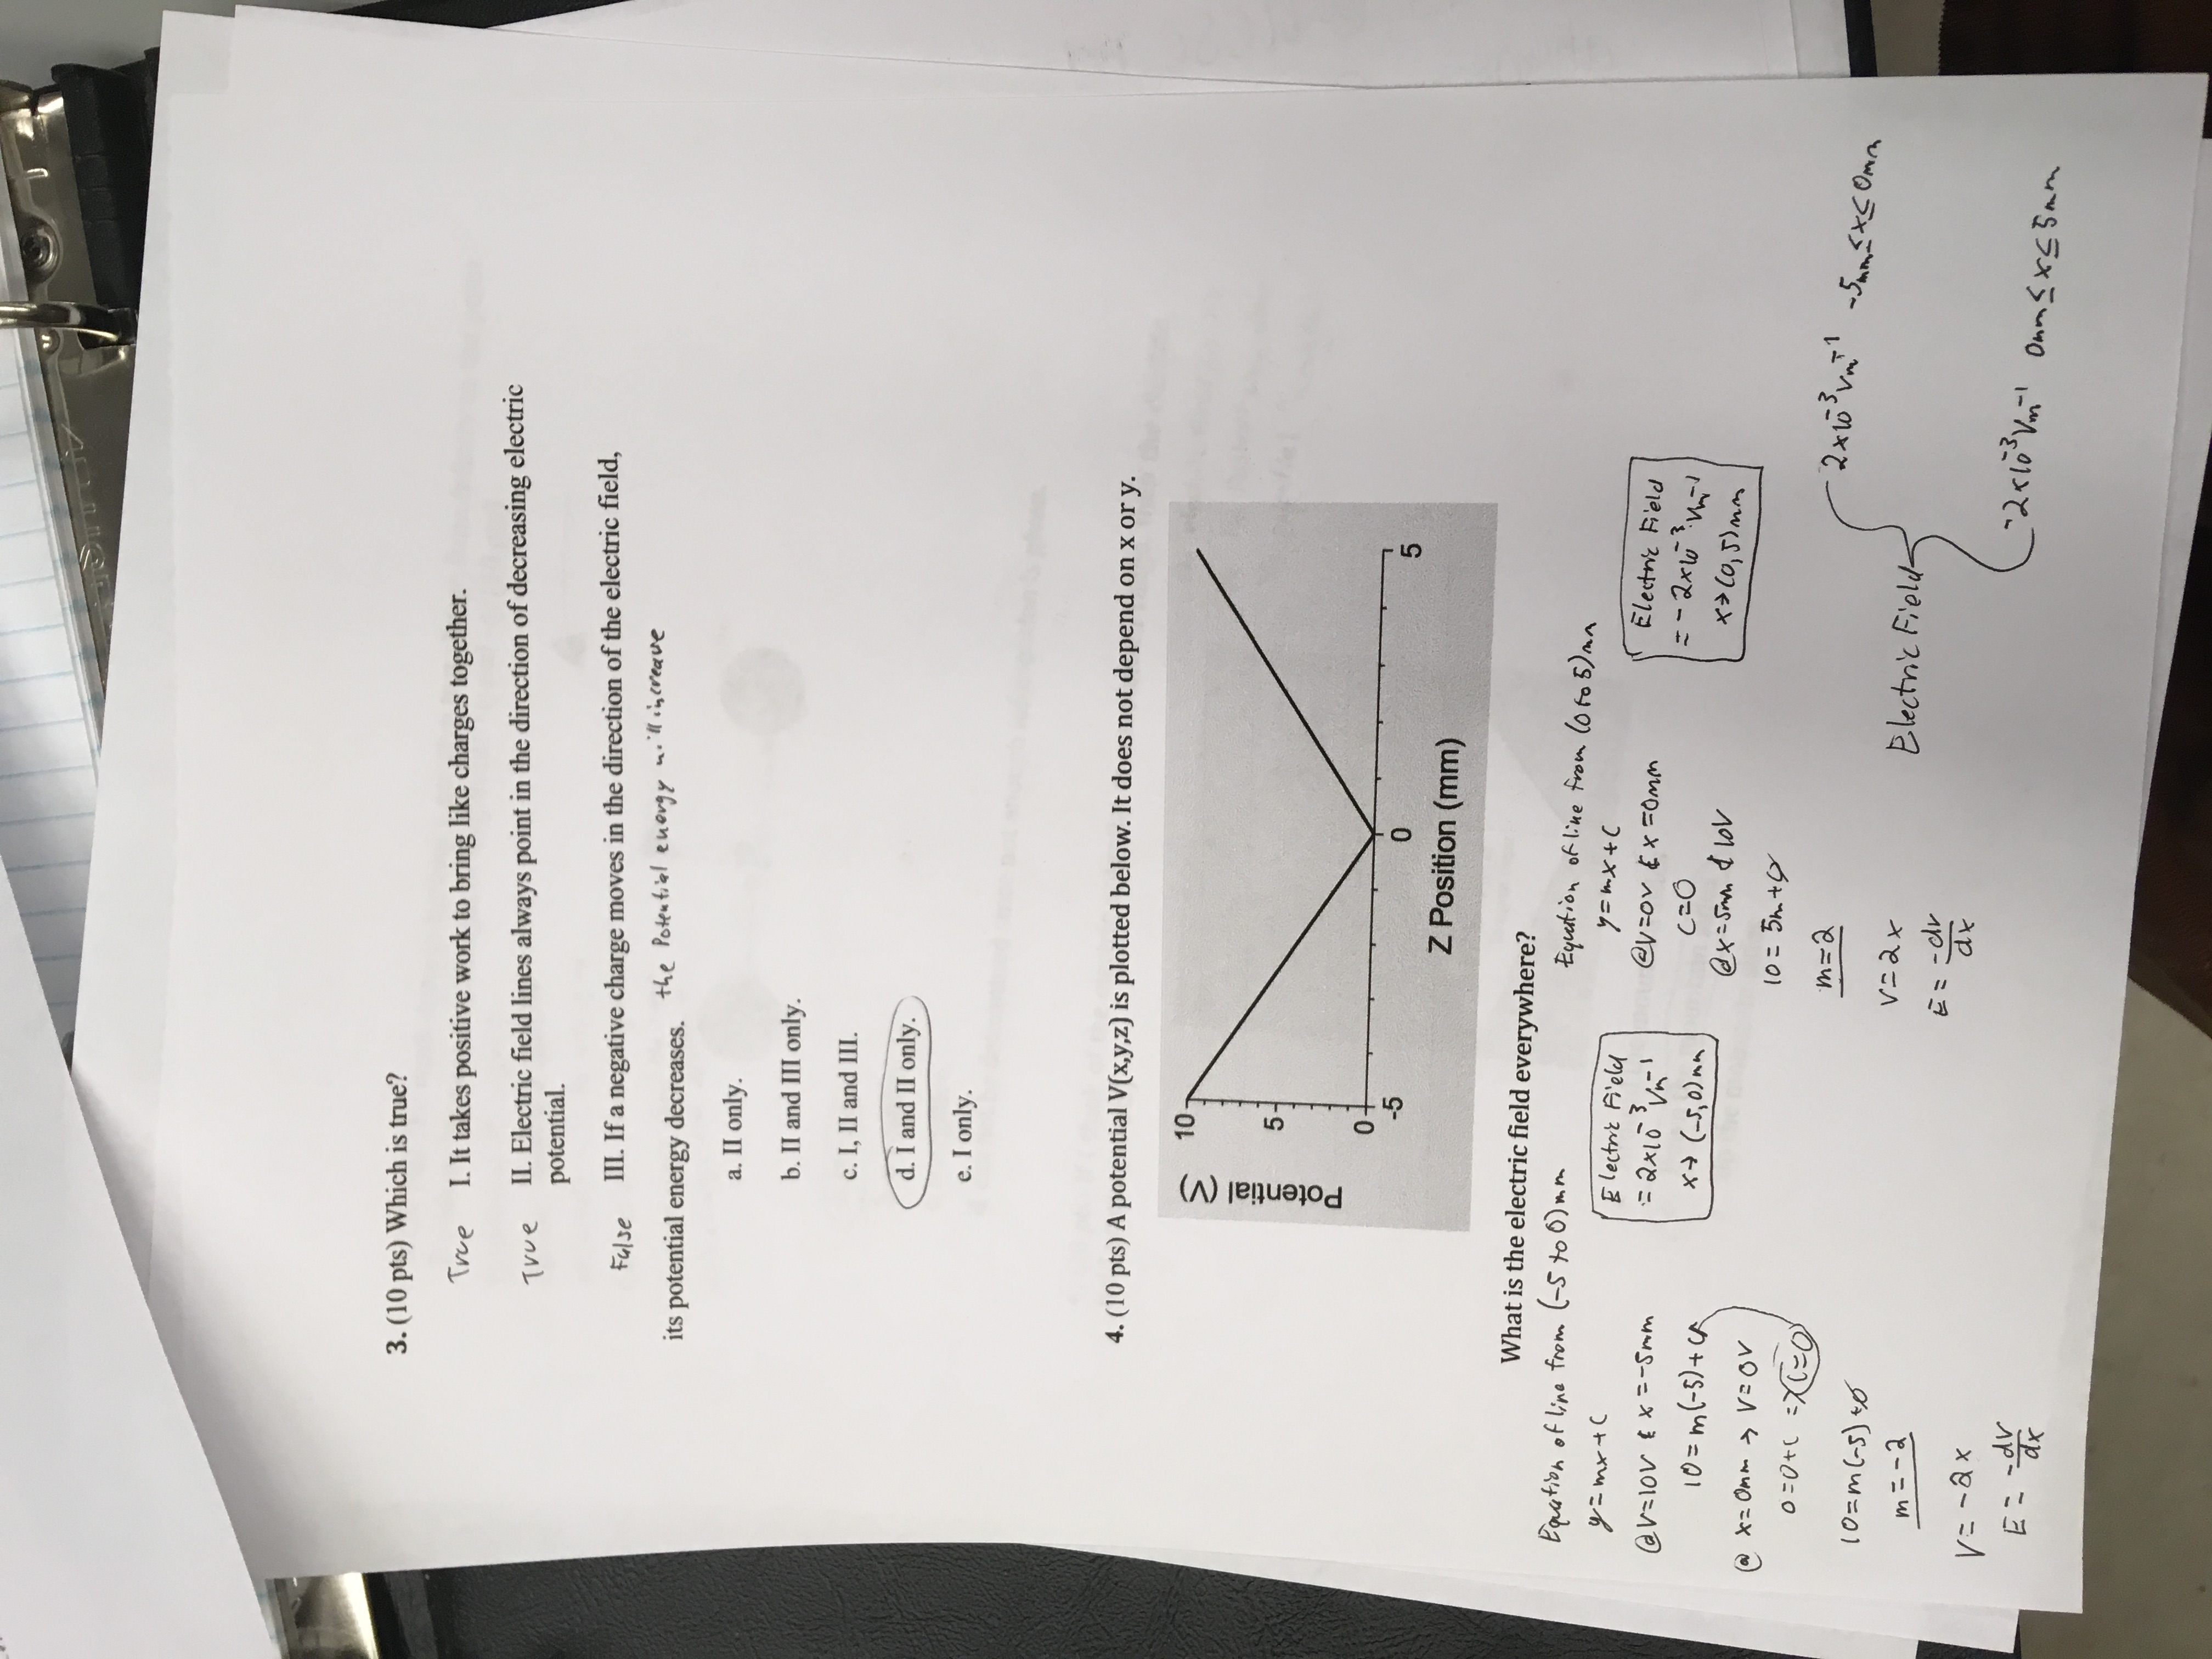 3. (10 pts) Which is true?
True I. It takes positive work to bring like charges together.
True II. Electric field lines always point in the direction of decreasing electric
potential.
False III. If a negative charge moves in the direction of the electric field,
its potential energy decreases. the Potential energy will increave
a. II only.
b. II and III only.
c. I, II and III.
d. I and II only.
e. I only.
4. (10 pts) A potential V(x,y,z) is plotted below. It does not depend on x or y.
Potential (V)
10
5
0
-5
0
5
Z Position (mm)
What is the electric field everywhere?
Equation of line from (-5 to 0)mm
y=mx+C
@V=10V & x=-5mm
10=m(-5)+C
@ x=0mm → V=0V
0=0+C => C=0
10=m(-5)+0
m=-2
V=-2x
E = -dV/dx
Electric Field
= 2×10^-3 Vm^-1
x→ (-5,0)mm
Equation of line from (0 to 5)mm
y=mx+C
@V=0V & x=0mm
C=0
@x=5mm & 10V
10=5m+0
m=2
V=2x
E = -dV/dx
Electric Field
= -2×10^-3 Vm^-1
x→(0,5)mm
Electric Field
2×10^-3 Vm^-1 -5mm≤x≤0mm
-2×10^-3 Vm^-1 0mm≤x≤5mm